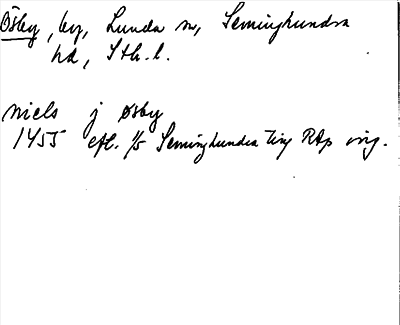 Ösby, by, Lunda sn, Seminghundra
hd, Sth. l.
niels j øsby
1455 eft. 1/5 Seminghundra ting RAp orig.